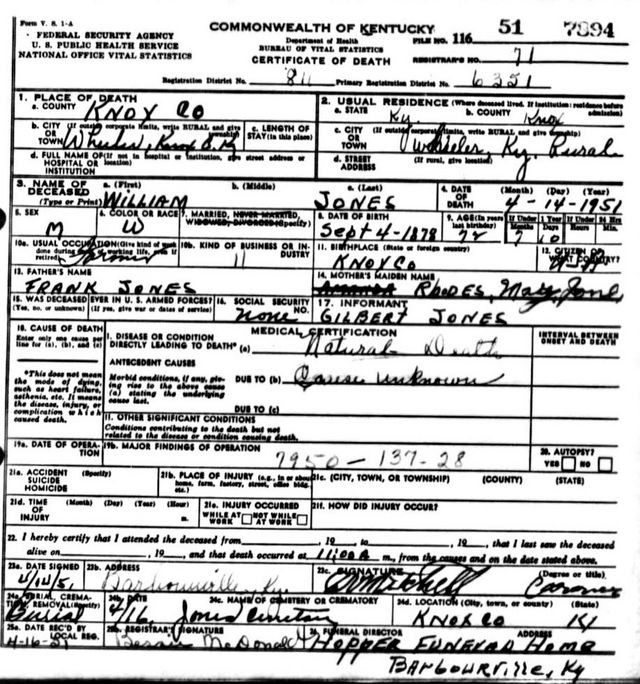 Form V. S. 1-A
FEDERAL SECURITY AGENCY
U. S. PUBLIC HEALTH SERVICE
NATIONAL OFFICE VITAL STATISTICS
COMMONWEALTH OF KENTUCKY
Department of Health
BUREAU OF VITAL STATISTICS
CERTIFICATE OF DEATH
FILE NO. 116 51 7894
REGISTRAR'S NO. 71
Registration District No. Primary Registration District No. 6351
1. PLACE OF DEATH
a. COUNTY KNOX CO
2. USUAL RESIDENCE (Where deceased lived. If institution: residence before admission)
a. STATE Ky. b. COUNTY Knox
b. CITY OR TOWN (If outside corporate limits, write RURAL and give township) Wheeler, Knox Co, Ky
c. LENGTH OF STAY (in this place)
c. CITY OR TOWN (If outside corporate limits, write RURAL and give township) Wheeler, Ky. Rural
d. FULL NAME OF HOSPITAL OR INSTITUTION (If not in hospital or institution, give street address or location)
d. STREET ADDRESS (If rural, give location)
3. NAME OF DECEASED (Type or Print)
a. (First) WILLIAM b. (Middle) c. (Last) JONES
4. DATE OF DEATH (Month) (Day) (Year) 4-14-1951
5. SEX M
6. COLOR OR RACE W
7. MARRIED, NEVER MARRIED, WIDOWED, DIVORCED (Specify)
8. DATE OF BIRTH Sept 4-1878
9. AGE (In years last birthday) 72 If Under 1 Year 7 10 If Under 24 Hrs
10a. USUAL OCCUPATION (Give kind of work done during most of working life, even if retired) Farmer
10b. KIND OF BUSINESS OR INDUSTRY 11
11. BIRTHPLACE (State or foreign country) KNOX CO
12. CITIZEN OF WHAT COUNTRY?
13. FATHER'S NAME
FRANK JONES
14. MOTHER'S MAIDEN NAME
RHODES, Mary Jane
15. WAS DECEASED EVER IN U. S. ARMED FORCES?
(Yes, no, or unknown) (If yes, give war or dates of service)
16. SOCIAL SECURITY NO. none
17. INFORMANT
GILBERT JONES
18. CAUSE OF DEATH
Enter only one cause per line for (a), (b), and (c)
MEDICAL CERTIFICATION
INTERVAL BETWEEN ONSET AND DEATH
I. DISEASE OR CONDITION
DIRECTLY LEADING TO DEATH* (a) Natural Death
ANTECEDENT CAUSES
*This does not mean the mode of dying, such as heart failure, asthenia, etc. It means the disease, injury, or complication which caused death.
Morbid conditions, if any, giving rise to the above cause (a) stating the underlying cause last.
DUE TO (b) Cause unknown
DUE TO (c)
II. OTHER SIGNIFICANT CONDITIONS
Conditions contributing to the death but not related to the disease or condition causing death.
19a. DATE OF OPERATION
19b. MAJOR FINDINGS OF OPERATION
7950-137-28
20. AUTOPSY?
YES NO
21a. ACCIDENT SUICIDE HOMICIDE (Specify)
21b. PLACE OF INJURY (e.g., in or about home, farm, factory, street, office bldg. etc.)
21c. (CITY, TOWN, OR TOWNSHIP) (COUNTY) (STATE)
21d. TIME OF INJURY (Month) (Day) (Year) (Hour) m.
21e. INJURY OCCURRED
WHILE AT WORK NOT WHILE AT WORK
21f. HOW DID INJURY OCCUR?
22. I hereby certify that I attended the deceased from , 19 to , 19 , that I last saw the deceased
alive on , 19 , and that death occurred at 11:00A m., from the causes and on the date stated above.
23a. DATE SIGNED
23b. ADDRESS Barbourville, Ky.
23c. SIGNATURE Mitchell (Degree or title) Coroner
24a. BURIAL, CREMATION, REMOVAL (Specify) Burial
24b. DATE 4/16
24c. NAME OF CEMETERY OR CREMATORY Jones Cemetery
24d. LOCATION (City, town, or county) (State) KNOX CO Ky
25a. DATE REC'D BY LOCAL REG. 4-16-51
25b. REGISTRAR'S SIGNATURE Bessie McDonald
26. FUNERAL DIRECTOR ADDRESS
HOPPER FUNERAL HOME
BARBOURVILLE, Ky